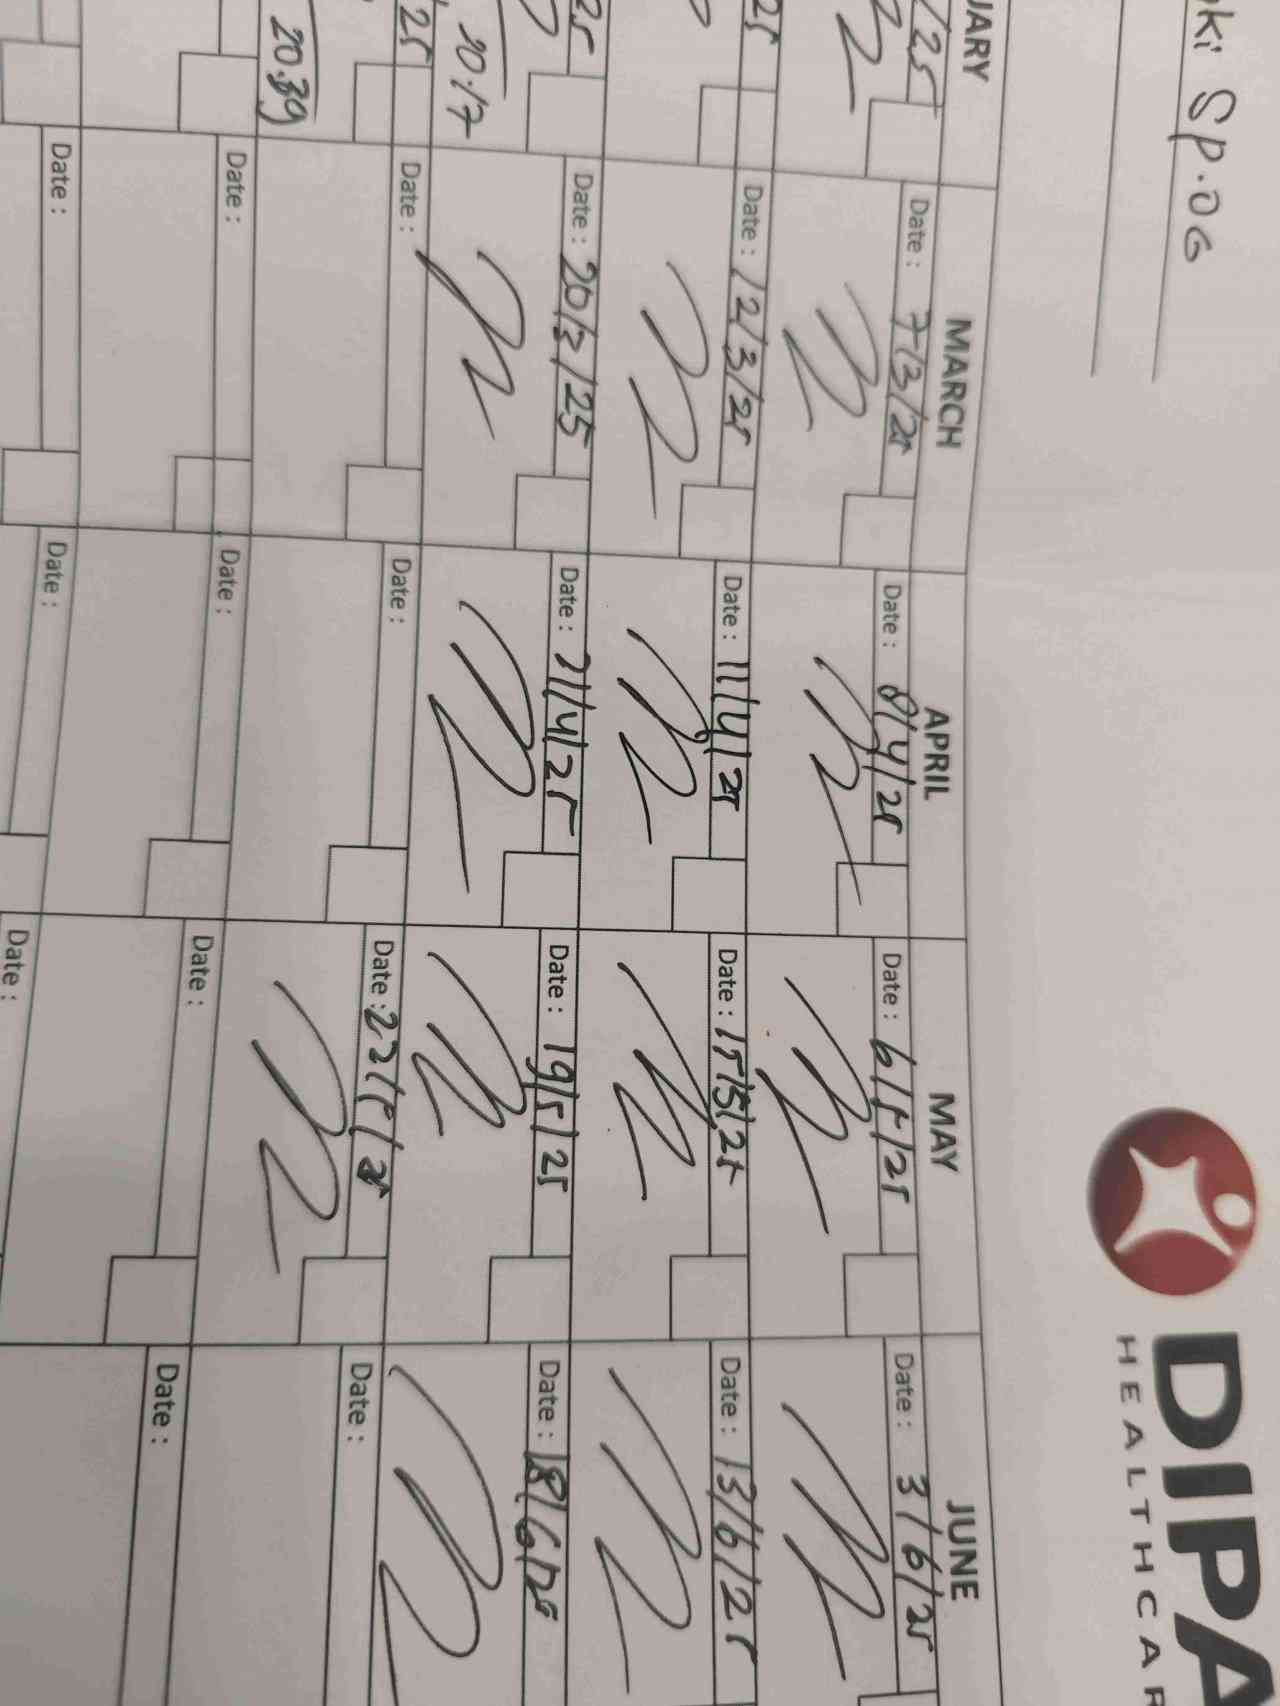 DIPA
HEALTHCAR
ki Sp.OG
UARY MARCH APRIL MAY JUNE
/25 Date : 7/3/25 Date : 8/4/25 Date : 6/5/25 Date : 3/6/25
25 Date : 12/3/25 Date : 11/4/25 Date : 15/5/25 Date : 13/6/25
25 Date : 20/3/25 Date : 21/4/25 Date : 19/5/25 Date : 18/6/25
20:17
25 Date : Date : Date : 22/5/25 Date :
20:39
Date : Date : Date : Date :
Date : Date : Date :